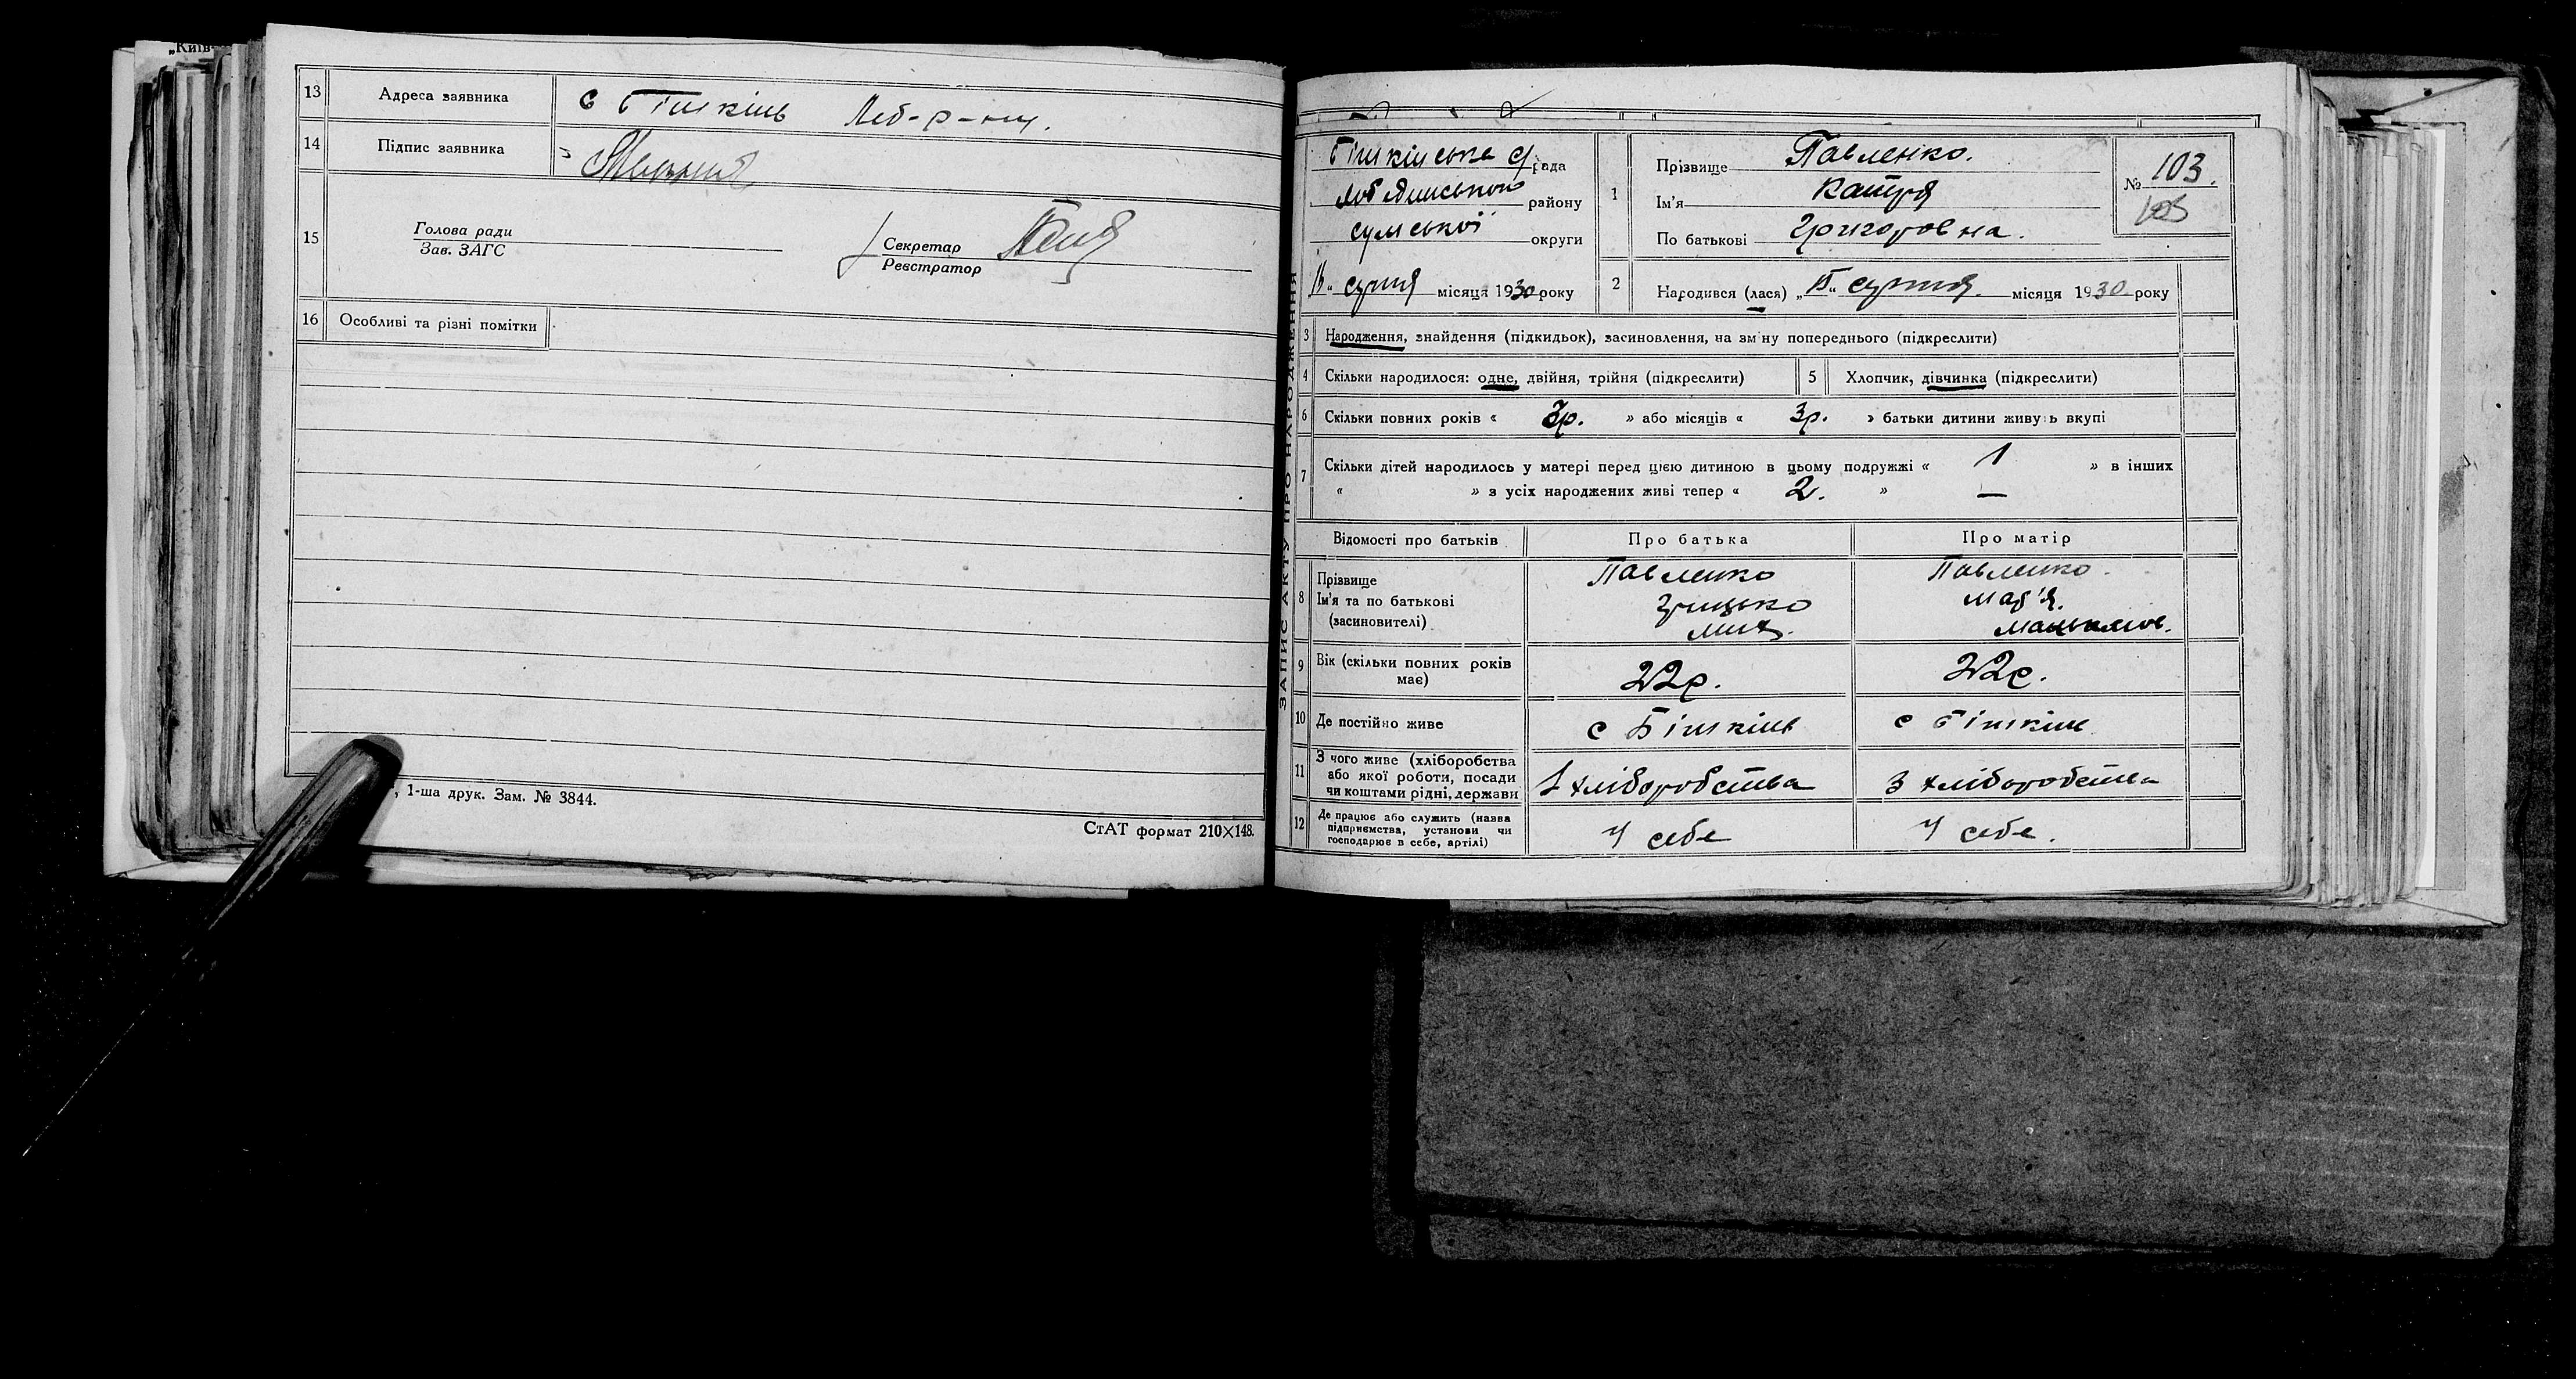 „Київ-
13 Адреса заявника с Бішкінь Леб-р-ну.
14 Підпис заявника
15 Голова ради
Зав. ЗАГС
Секретар
Реєстратор
16 Особливі та різні помітки
, 1-ша друк. Зам. № 3844.
СтАТ формат 210×148.
ЗАПИС АКТУ ПРО НАРОДЖЕННЯ
Бішкінська с/рада
Лебединського району
Сумської округи
серпня місяця 1930 року
1 Прізвище Павленко.
Ім'я Катря
По батькові Григоровна.
№ 103.
103
2 Народився (лася) „ “ серпня. місяця 1930 року
3 Народження, знайдення (підкидьок), засиновлення, на зміну попереднього (підкреслити)
4 Скільки народилося: одне, двійня, трійня (підкреслити) 5 Хлопчик, дівчинка (підкреслити)
6 Скільки повних років « 3р. » або місяців « 3р. » батьки дитини живуть вкупі
7 Скільки дітей народилось у матері перед цією дитиною в цьому подружжі « 1 » в інших
« » з усіх народжених живі тепер « 2. » —
Відомості про батьків Про батька Про матір
8 Прізвище Павленко Павленко.
Ім'я та по батькові Грицько Мар'я.
(засиновителі) Мих.
9 Вік (скільки повних років має) 22р. 22р.
10 Де постійно живе с Бішкінь с Бішкінь
11 З чого живе (хліборобства
або якої роботи, посади
чи коштами рідні, держави З хліборобства З хліборобства
12 Де працює або служить (назва
підприємства, установи чи
господарює в себе, артілі) У себе У себе.